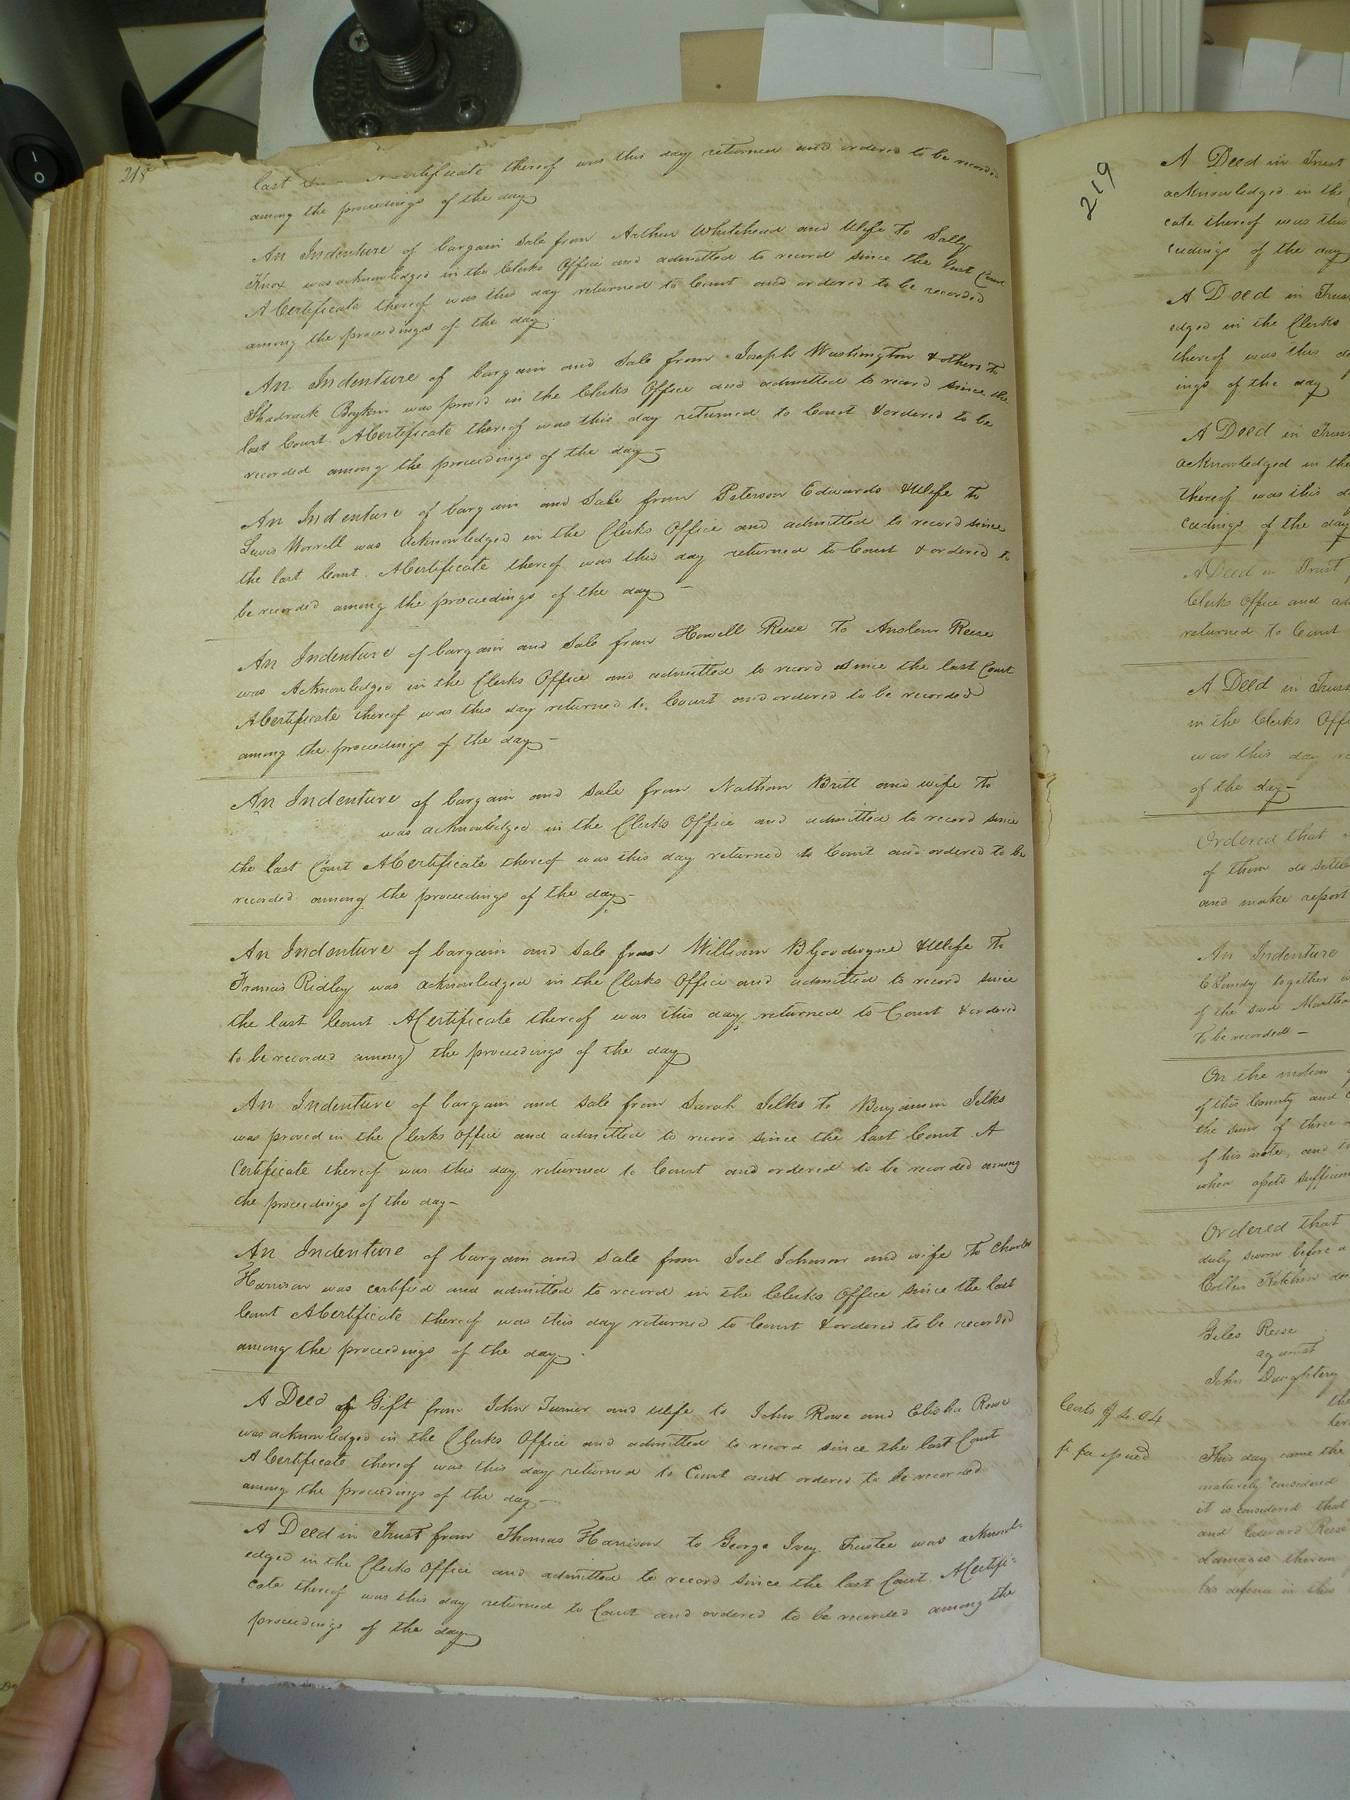 218
last A Certificate thereof was this day returned and ordered to be recorded
among the proceedings of the day
An Indenture of bargain Sale from Arthur Whitehead and Wife to Sally
Knox was acknowledged in the Clerks Office and admitted to record since the last Court
A Certificate thereof was this day returned to Court and ordered to be recorded
among the proceedings of the day.
An Indenture of bargain and Sale from Joseph Washington & others to
Shadrack Boykin was proved in the Clerks Office and admitted to record since the
last Court. A Certificate thereof was this day returned to Court & ordered to be
recorded among the proceedings of the day—
An Indenture of bargain and Sale from Peterson Edwards & Wife to
Lewis Worrell was acknowledged in the Clerks Office and admitted to record since
the last Court. A Certificate thereof was this day returned to Court & ordered to
be recorded among the proceedings of the day —
An Indenture of bargain and Sale from Howell Reese to Anslem Reese
was Acknowledged in the Clerks Office and admitted to record since the last Court
A Certificate thereof was this day returned to Court and ordered to be recorded
among the proceedings of the day—
An Indenture of bargain and Sale from Nathan Britt and wife to
was acknowledged in the Clerks Office and admitted to record since
the last Court A Certificate thereof was this day returned to Court and ordered to be
recorded among the proceedings of the day—
An Indenture of bargain and Sale from William B Goodwyne & Wife to
Francis Ridley was acknowledged in the Clerks Office and admitted to record since
the last Court A Certificate thereof was this day returned to Court & ordered
to be recorded among the proceedings of the day
An Indenture of bargain and sale from Sarah Jelks to Benjamin Jelks
was proved in the Clerks office and admitted to record since the last Court A
Certificate thereof was this day returned to Court and ordered to be recorded among
the proceedings of the day—
An Indenture of bargain and Sale from Joel Johnson and wife to Charles
Harrison was certified and admitted to record in the Clerks Office since the last
Court A Certificate thereof was this day returned to Court & ordered to be recorded
among the proceedings of the day.
A Deed of Gift from John Turner and Wife to John Rowe and Elisha Rowe
was acknowledged in the Clerks Office and admitted to record since the last Court
A Certificate thereof was this day returned to Court and ordered to be recorded
among the proceedings of the day—
A Deed in Trust from Thomas Harrison to George Ivey Trustee was acknowl-
edged in the Clerks Office and admitted to record since the last Court. A Certifi-
cate thereof was this day returned to Court and ordered to be recorded among the
proceedings of the day
219
A Deed in Trust
acknowledged in the
cate thereof was this
ceedings of the day
A Deed in Trust
edged in the Clerks
thereof was this
ings of the day
A Deed in Trust
acknowledged in the
thereof was this
ceedings of the day
A Deed in Trust
Clerks Office and
returned to Court
A Deed in Trust
in the Clerks Offi
was this day
of the day—
Ordered that
of them do settle
and make report
An Indenture
together
of the said
to be recorded—
On the motion
of this County and
the sum of three
of his note, and
when assets sufficien
Ordered that
duly sworn before
Giles Reese
against
John Daughtery
the
This day came the
maturely considered
it is considered that
and Edward Reese
damages
his defence in this